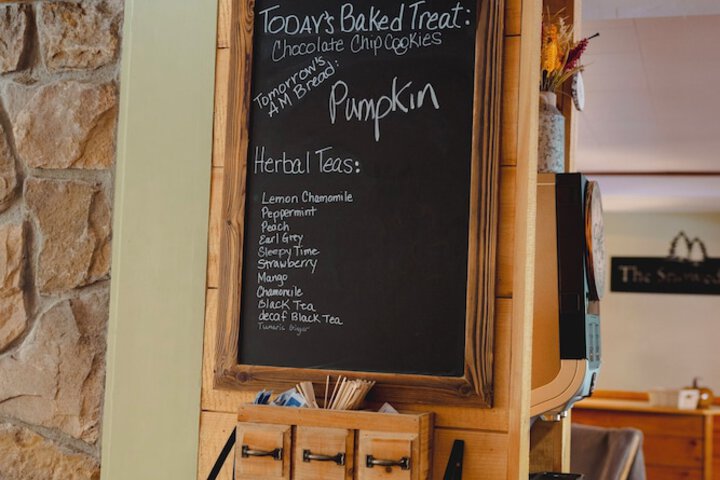 TODAY'S BAKED TREAT:
CHOCOLATE CHIP COOKIES
TOMORROW'S
AM BREAD:
PUMPKIN
HERBAL TEAS:
Lemon Chamomile
Peppermint
Peach
Earl Grey
Sleepy Time
Strawberry
Mango
Chamomile
BLACK TEA
decaf BLACK TEA
Tumeric Ginger
The